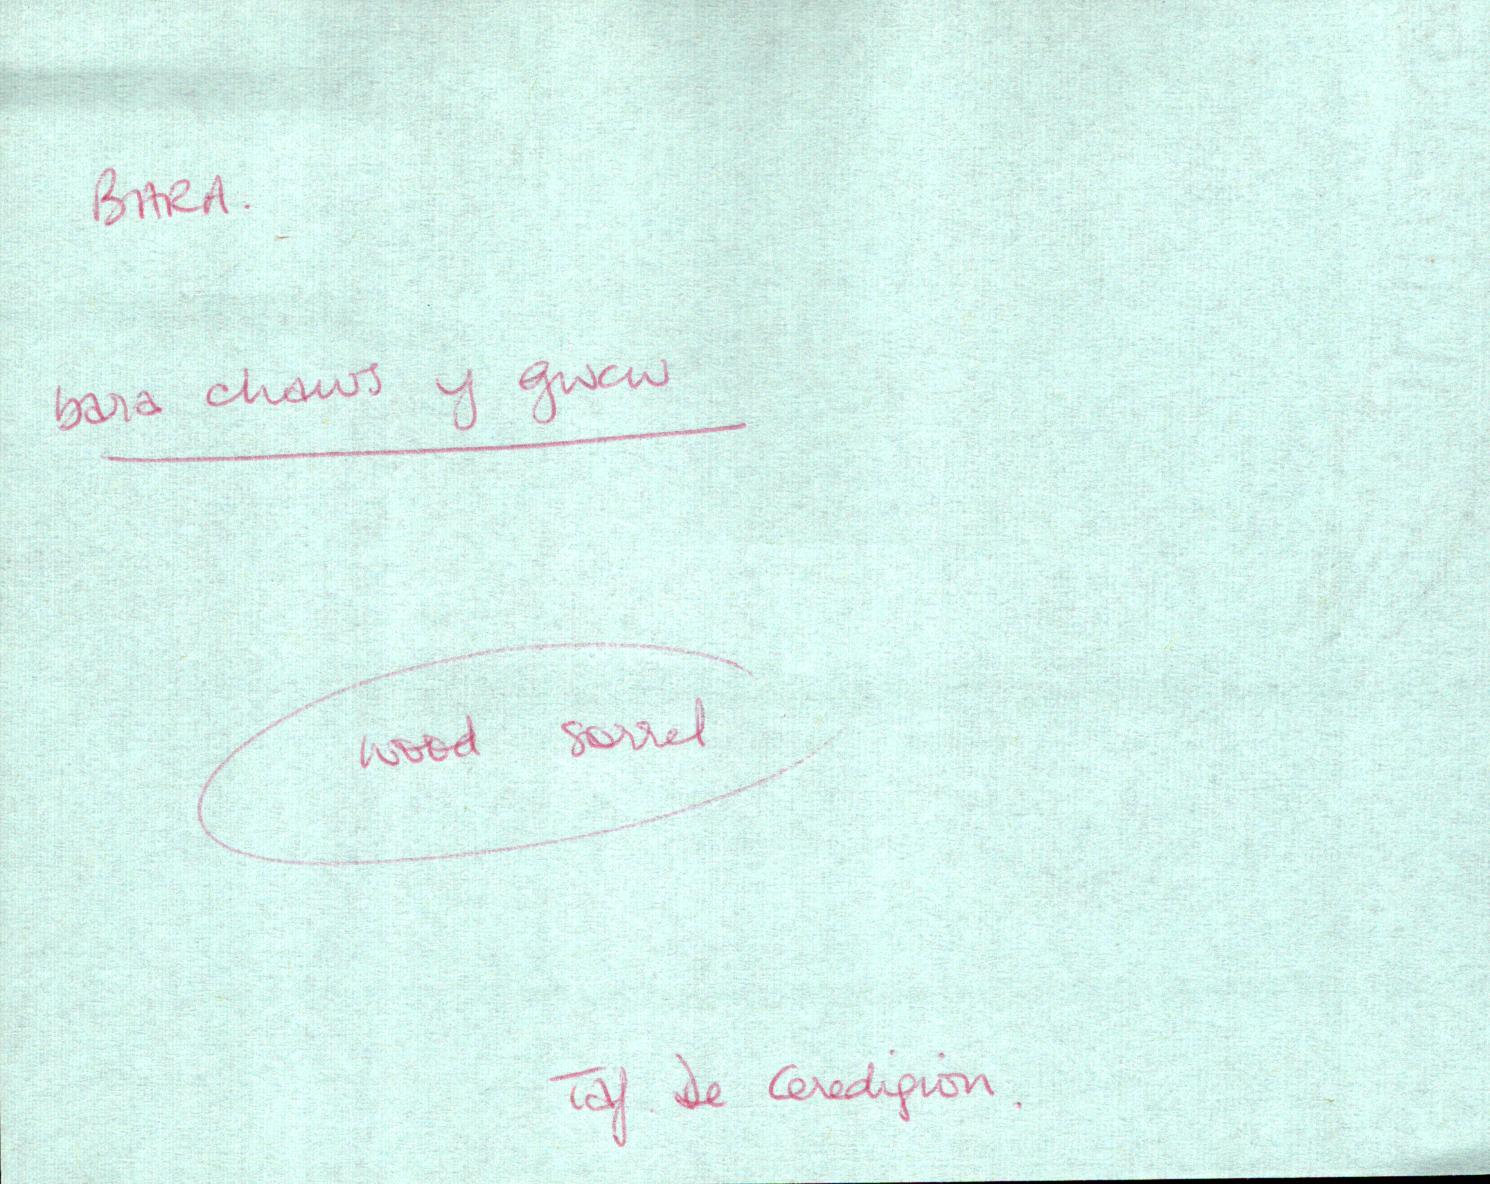 BARA.
bara chaws y gwcw
wood sorrel
Taf. De Ceredigion.